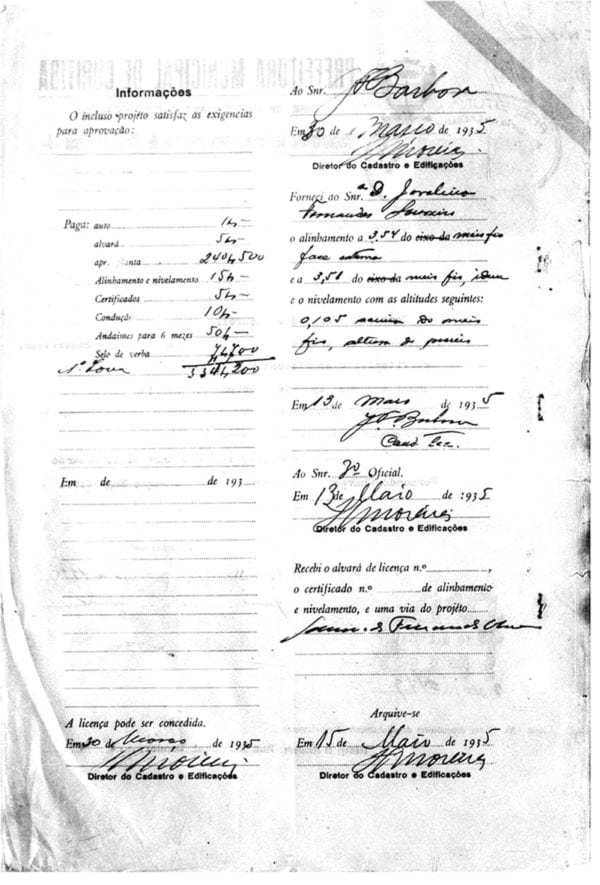 Informações
O incluso projéto satisfaz as exigencias
para aprovação:
Paga: auto 1$-
alvará 5$-
apr. planta 240$500
Alinhamento e nivelamento 15$-
Certificados 5$-
Condução 10$-
Andaimes para 6 mezes 50$-
Selo de verba 7$700
334$200
Em de de 193
A licença pode ser concedida.
Em 30 de Março de 1935
Diretor do Cadastro e Edificações
Ao Snr. Barbosa
Em 30 de Março de 1935
Diretor do Cadastro e Edificações
Forneci ao Snr. D. Jovelina
Fernandes Loureiro
o alinhamento a 3,54 do eixo da meio fio
face externa
e a 3,58 do eixo da meio fio, idem
e o nivelamento com as altitudes seguintes:
0,105 acima do meio
fio,
Em 13 de Maio de 1935
Barbosa
Ao Snr. 3º Oficial.
Em 13 de Maio de 1935
Diretor do Cadastro e Edificações
Recebi o alvará de licença n.º ,
o certificado n.º de alinhamento
e nivelamento, e uma via do projéto
Arquive-se
Em 15 de Maio de 1935
Diretor do Cadastro e Edificações